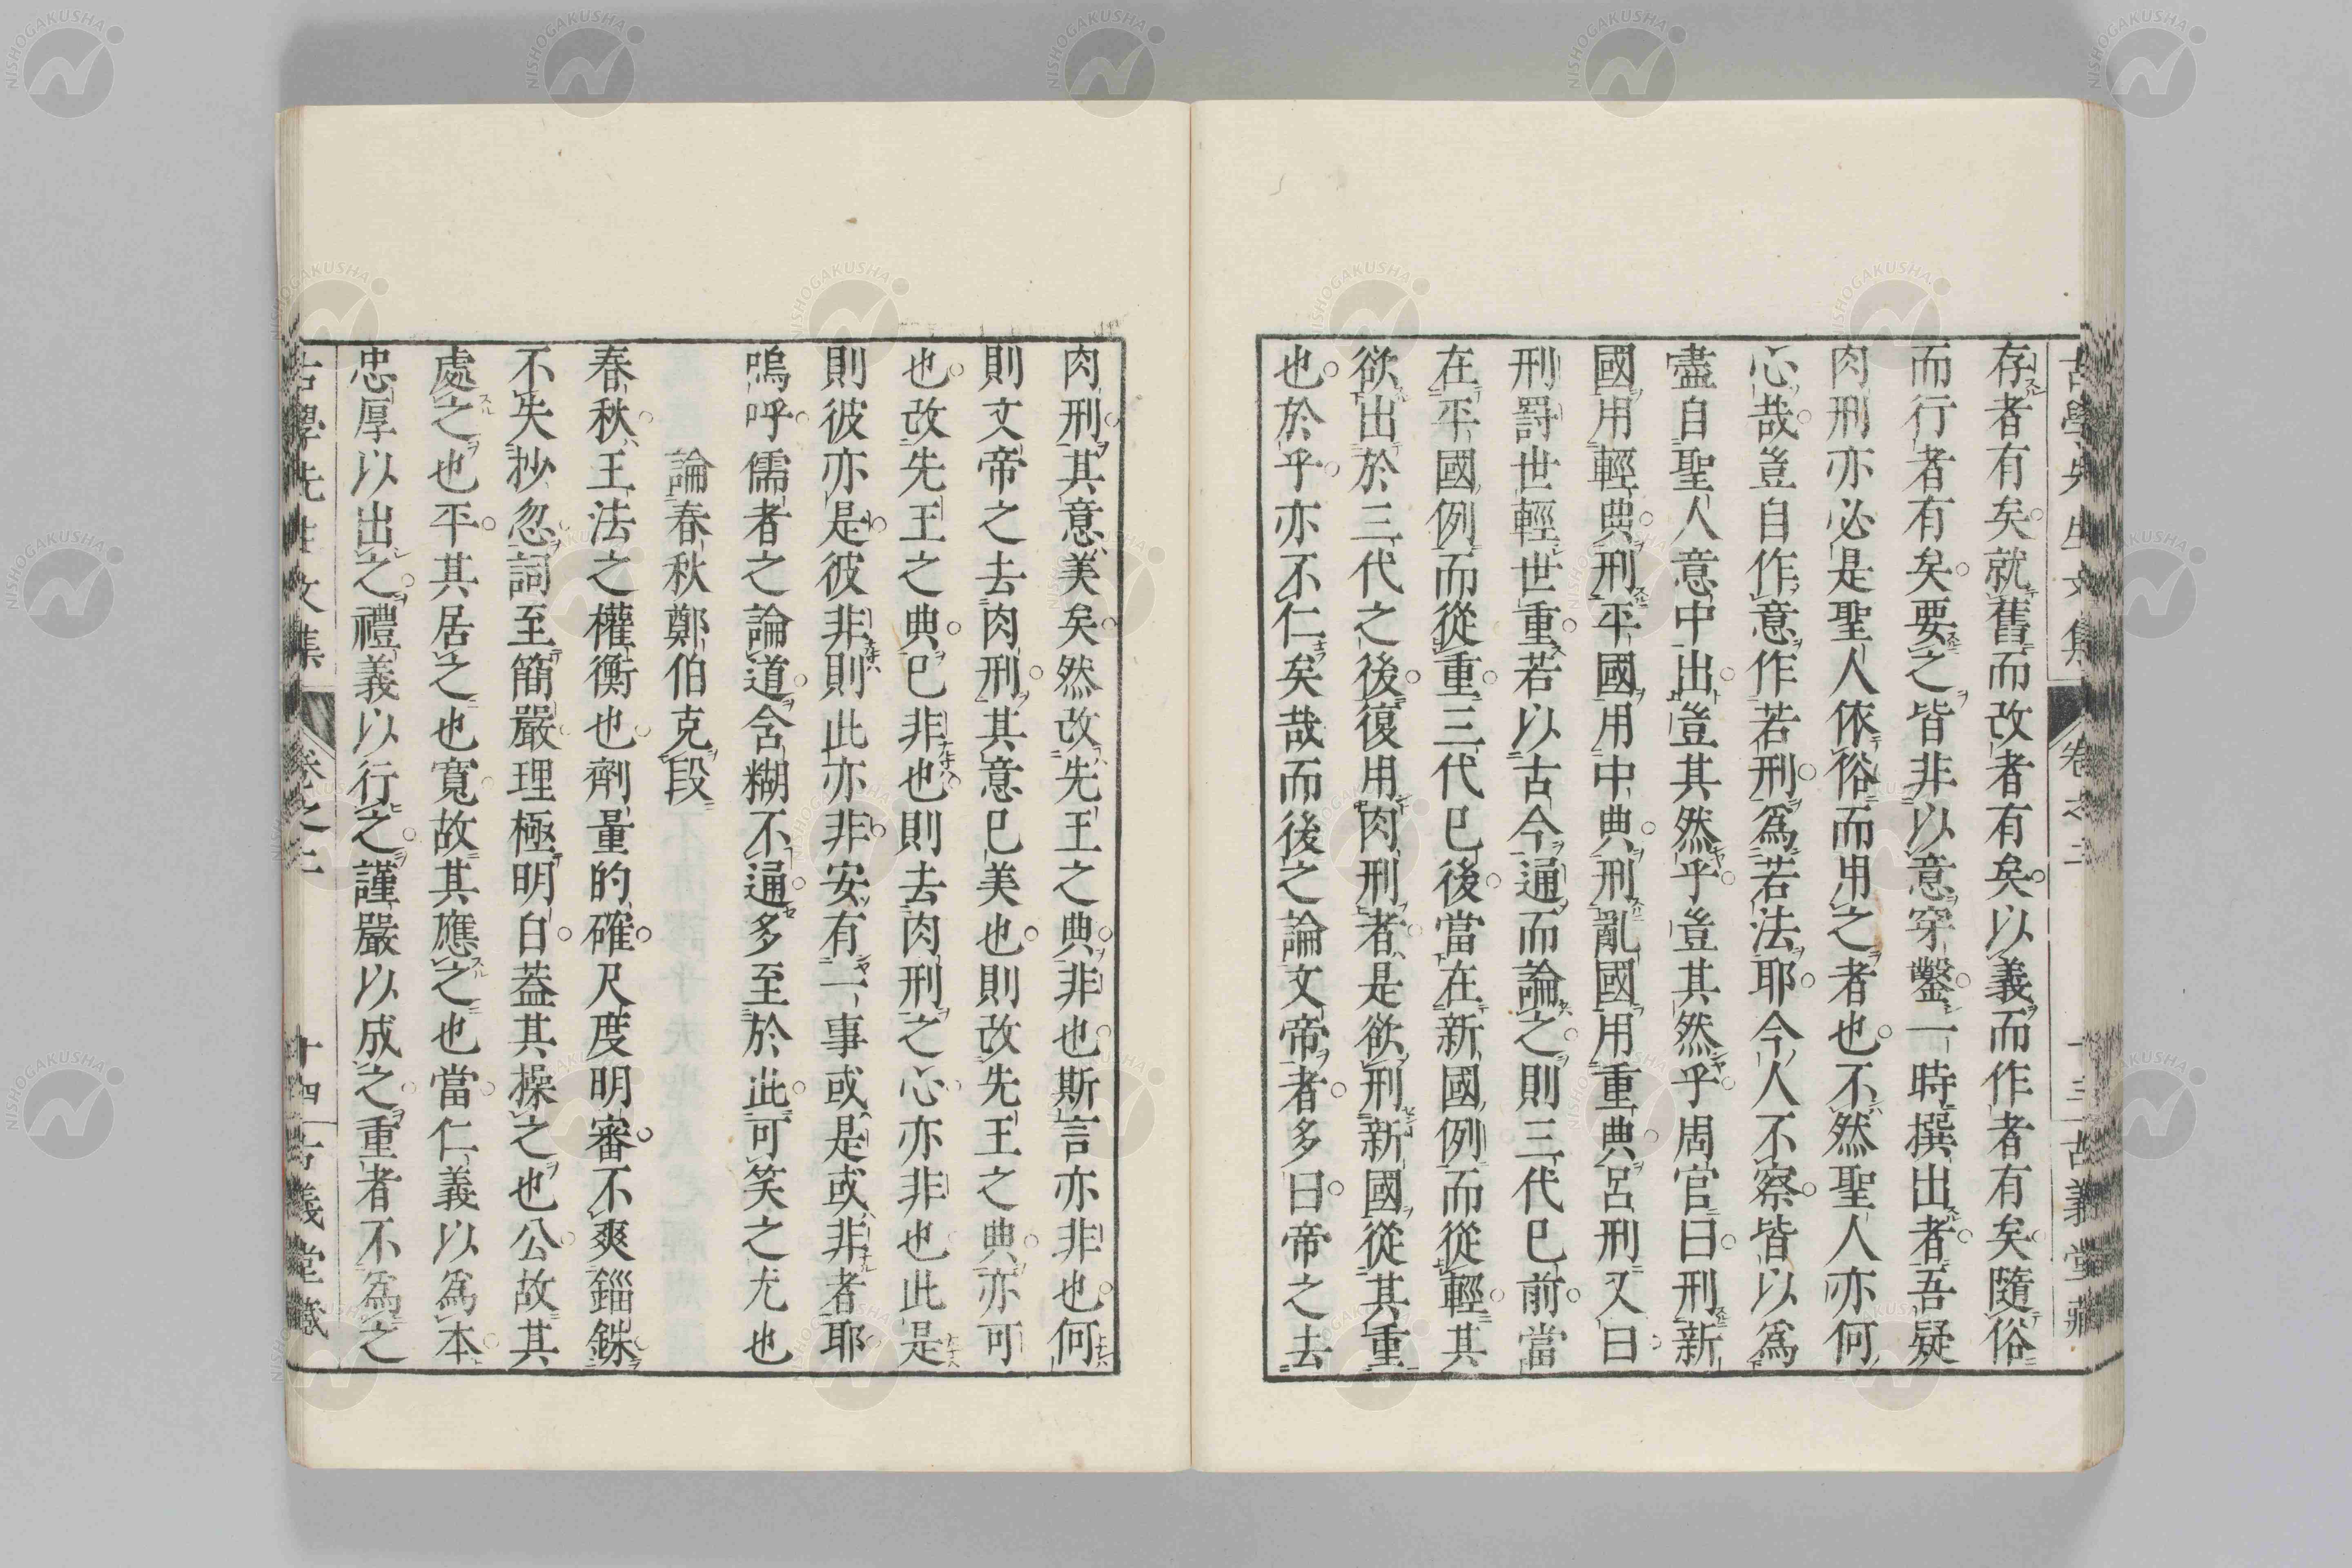 古學先生文集 卷之二 十三 古義堂藏
存者有矣就舊而改者有矣以義而作者有矣隨俗
而行者有矣要之皆非以意穿鑿一時撰出者吾疑
肉刑亦必是聖人依俗而用之者也不然聖人亦何
心哉豈自作意作若刑爲若法耶今人不察皆以爲
盡自聖人意中出豈其然乎豈其然乎周官曰刑新
國用輕典刑平國用中典刑亂國用重典呂刑又曰
刑罰世輕世重若以古今通而論之則三代已前當
在平國例而從重三代已後當在新國例而從輕其
欲出於三代之後復用肉刑者是欲刑新國從其重
也於乎亦不仁矣哉而後之論文帝者多曰帝之去
肉刑其意美矣然改先王之典非也斯言亦非也何
則文帝之去肉刑其意已美也則改先王之典亦可
也改先王之典已非也則去肉刑之心亦非也此是
則彼亦是彼非則此亦非安有一事或是或非者耶
嗚呼儒者之論道含糊不通多至於此可笑之尤也
論春秋鄭伯克段
春秋王法之權衡也劑量的確尺度明審不爽錙銖
不失抄忽詞至簡嚴理極明白蓋其操之也公故其
處之也平其居之也寬故其應之也當仁義以爲本
忠厚以出之禮義以行之謹嚴以成之重者不爲之
古學先生文集 卷之二 十四 古義堂藏
NISHOGAKUSHA